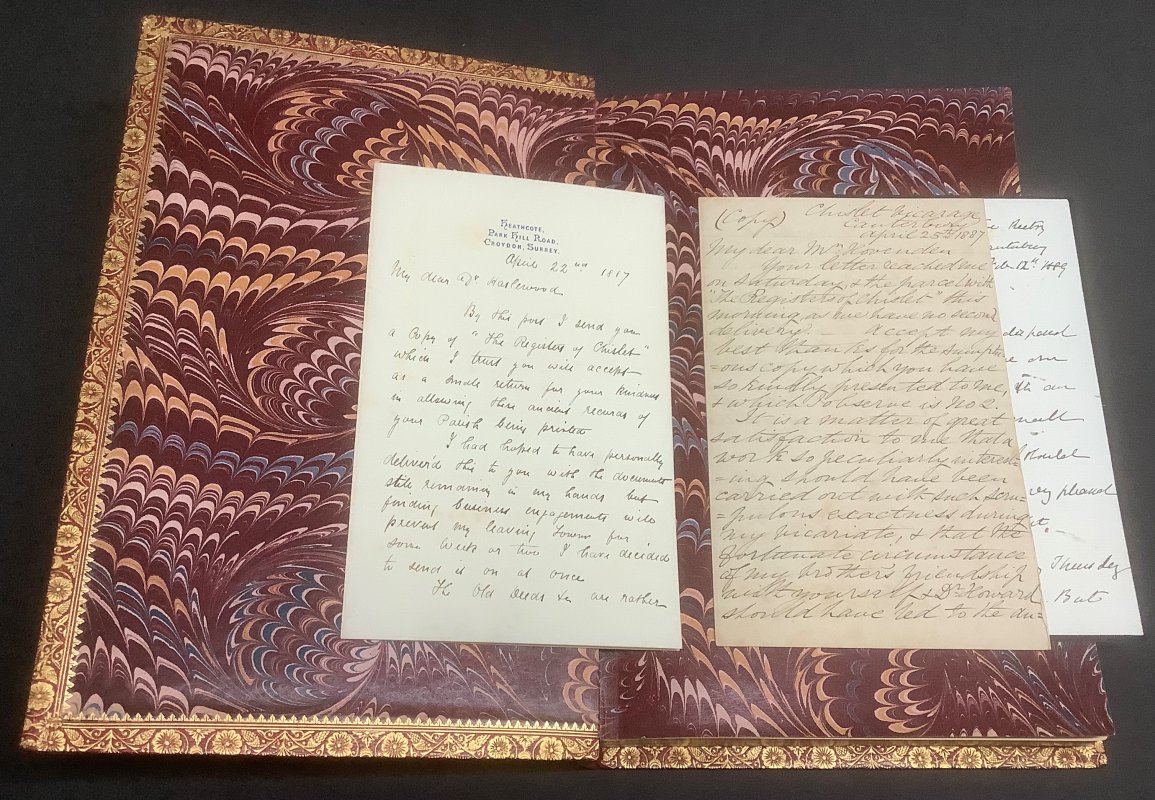 HEATHCOTE,
PARK HILL ROAD,
CROYDON, SURREY.
April 22nd 1887
My dear Dr Haslewood
By this post I send you
a Copy of "The Register of Chislet"
which I trust you will accept
as a small return for your kindness
in allowing these ancient records of
your Parish being printed
I had hoped to have personally
deliver'd this to you with the documents
still remaining in my hands but
finding business engagements will
prevent my leaving Town for
some week or two I have decided
to send it on at once
The Old Deeds &c are rather
(Copy) Chislet Vicarage
Canterbury
April 25th 1887
My dear Mr Hovenden
Your letter reached me
on Saturday, & the parcel with
"The Registers of Chislet" this
morning, as we have no second
delivery. Accept my
best thanks for the sumptu=
=ous copy which you have
so kindly presented to me,
& which I observe is No 2.
It is a matter of great
satisfaction to me that a
work so peculiarly interest=
=ing should have been
carried out with such scru=
=pulous exactness during
my vicariate, & that the
fortunate circumstance
of my brother's friendship
with yourself & Dr Howard
should have led to the un=
Rectory
Canterbury
12th 1889
our
our
should
very pleased
it."
Thursday
But